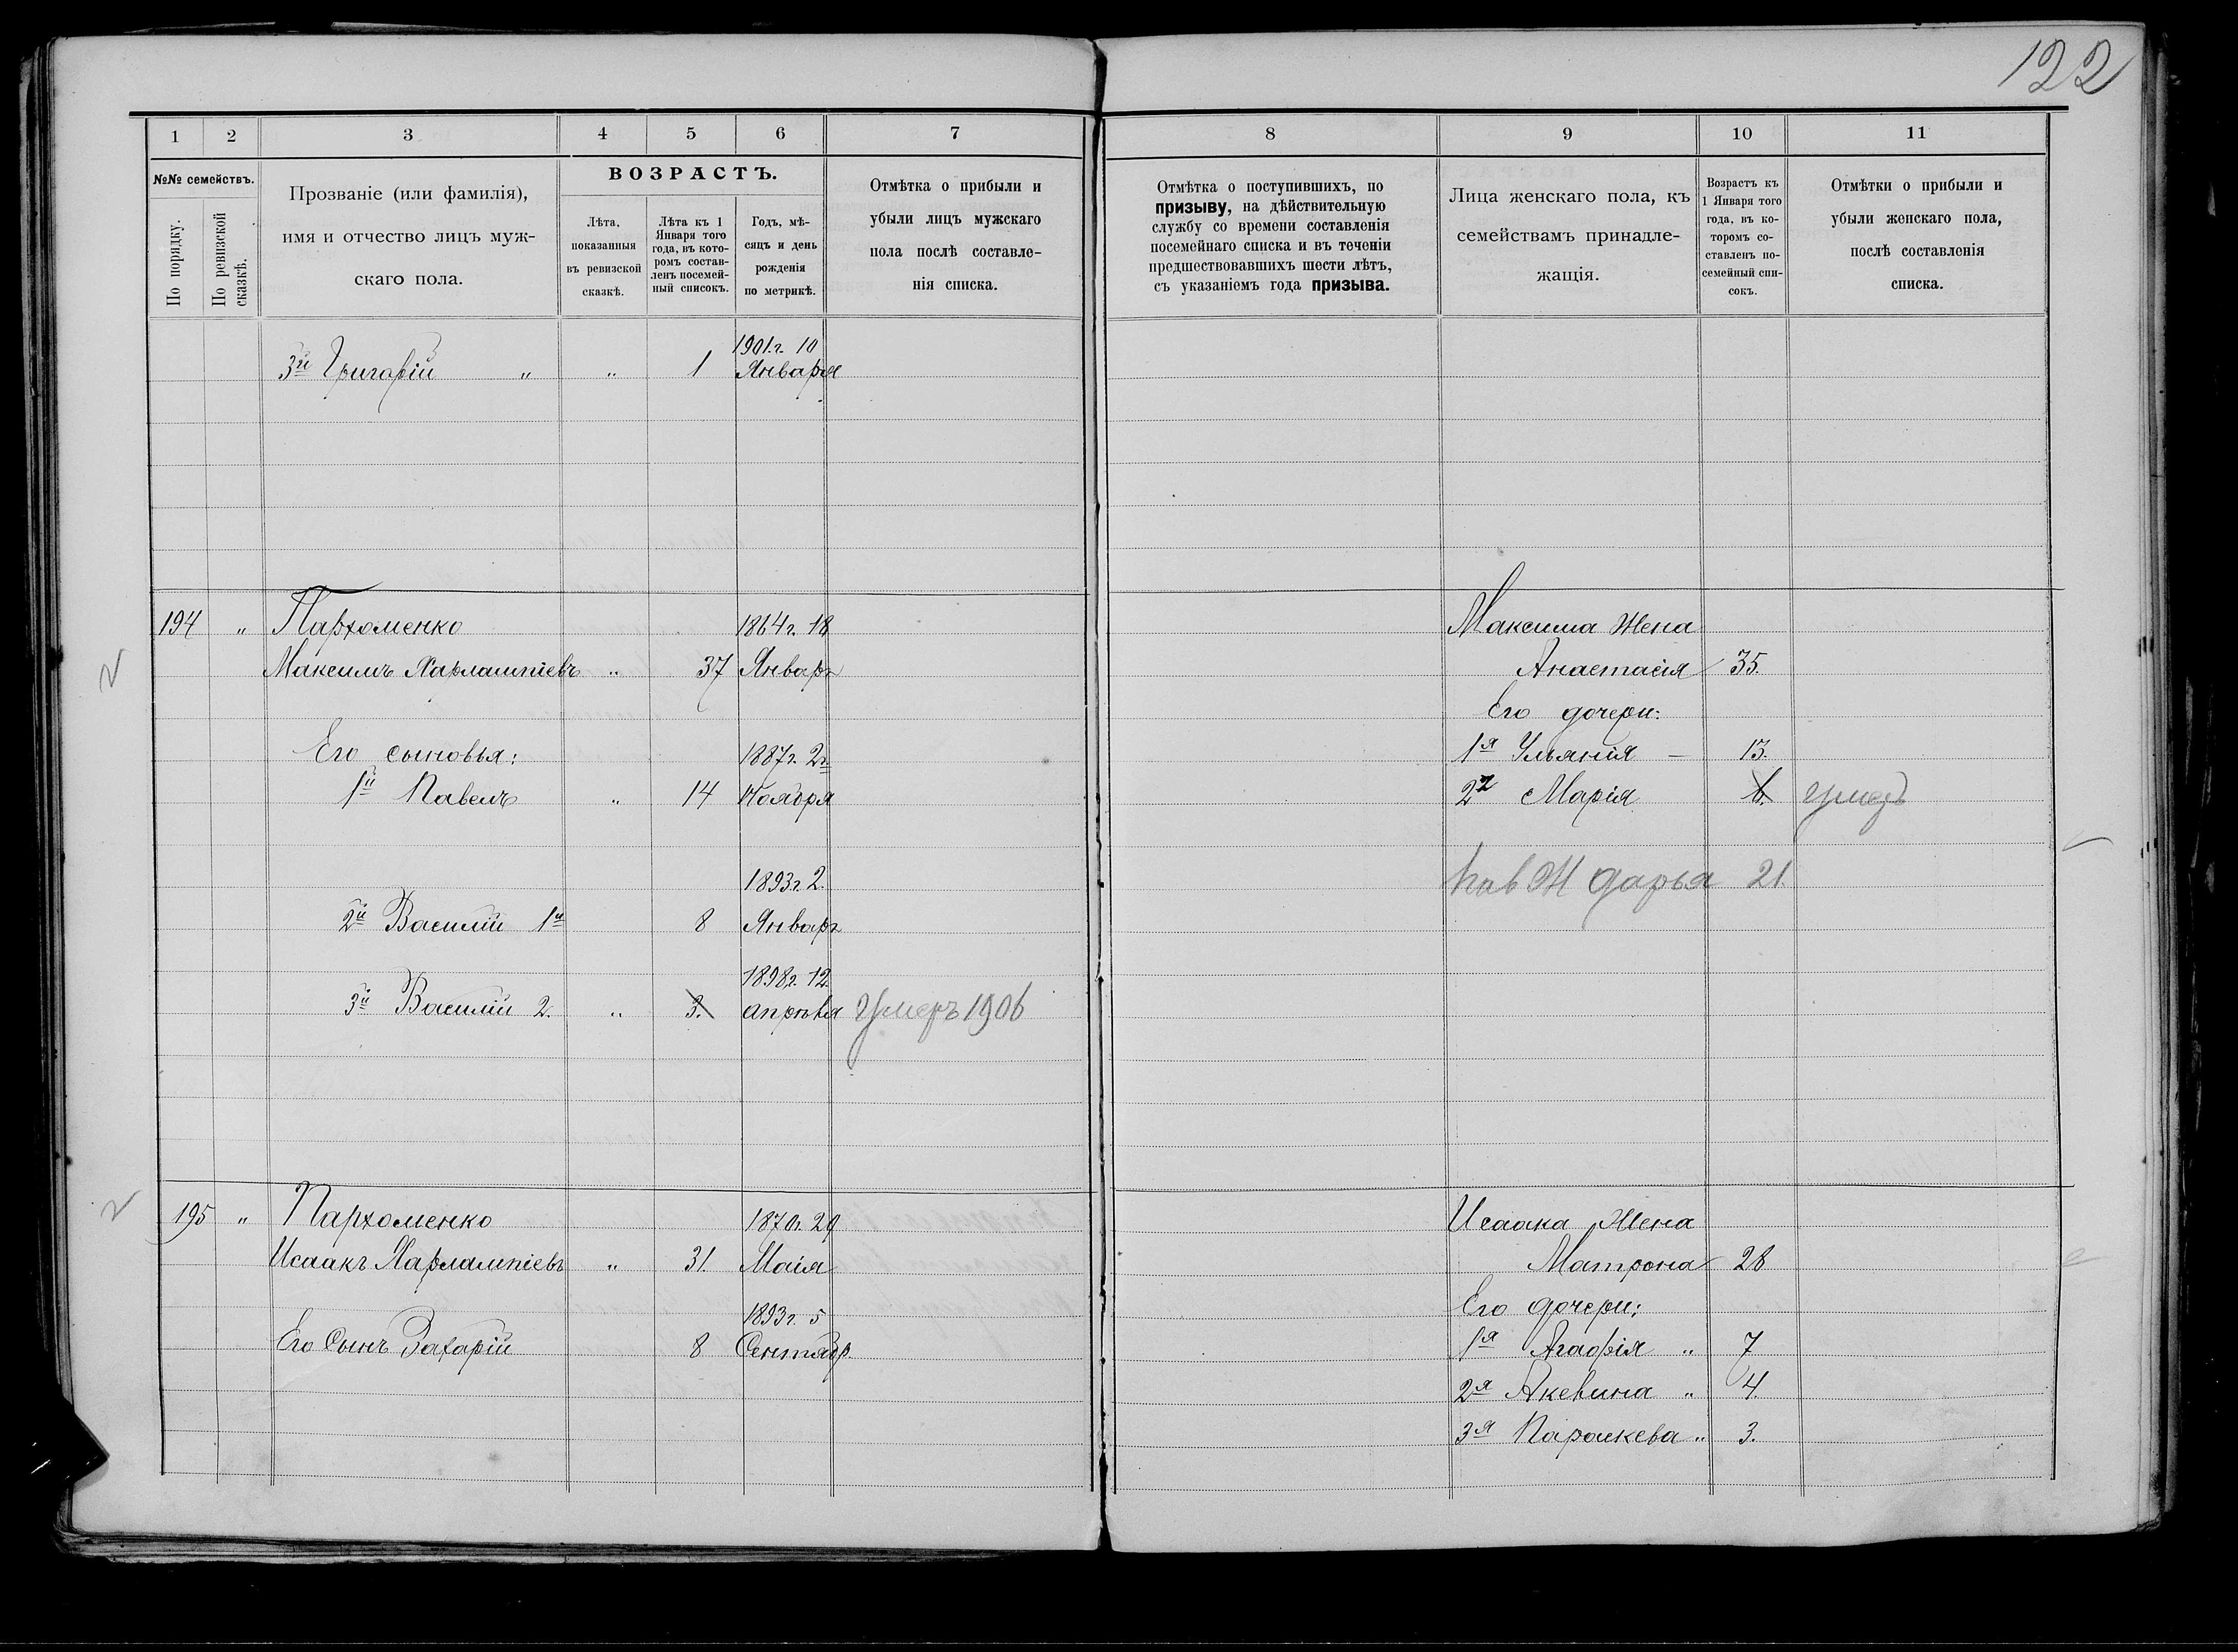 122
1 2 3 4 5 6 7
№№ семействъ.
По порядку.
По ревизской сказкѣ.
Прозваніе (или фамилія),
имя и отчество лицъ муж-
скаго пола.
ВОЗРАСТЪ.
Лѣта,
показанныя
въ ревизской
сказкѣ.
Лѣта къ 1
Января того
года, въ кото-
ромъ состав-
ленъ посемей-
ный списокъ.
Годъ, мѣ-
сяцъ и день
рожденія
по метрикѣ.
Отмѣтка о прибыли и
убыли лицъ мужскаго
пола послѣ составле-
нія списка.
1901 г. 10
3й Григорій " " 1 Января
194 " Пархоменко 1864 г. 18
Максимъ Харлампіевъ " 37 Январ
Его сыновья: 1887 г. 2г.
1й Павелъ " 14 Ноября
1893 г. 2.
2й Василій 1й 8 Январ
1898 г. 12
3й Василій 2. " 3. апрѣля Умеръ 1906
195 " Пархоменко 1870 г. 29
Исаакъ Харлампіевъ " 31. Маія
1893 г. 5
Его Сынъ Захарій 8 Сентябр.
8 9 10 11
Отмѣтка о поступившихъ, по
призыву, на дѣйствительную
службу со времени составленія
посемейнаго списка и въ теченіи
предшествовавшихъ шести лѣтъ,
съ указаніемъ года призыва.
Лица женскаго пола, къ
семействамъ принадле-
жащія.
Возрастъ къ
1 Января того
года, въ ко-
торомъ со-
ставленъ по-
семейный спи-
сокъ.
Отмѣтки о прибыли и
убыли женскаго пола,
послѣ составленія
списка.
Максима Жена
Анастасія 35.
Его дочери:
1я Ульянія — 13.
2я Марія 6. умеръ
Пав Ж Дарья 21.
Исаака Жена
Матрона 28
Его дочери:
1я Агафія " 7
2я Акевина " 4.
3я Параскева " 3.